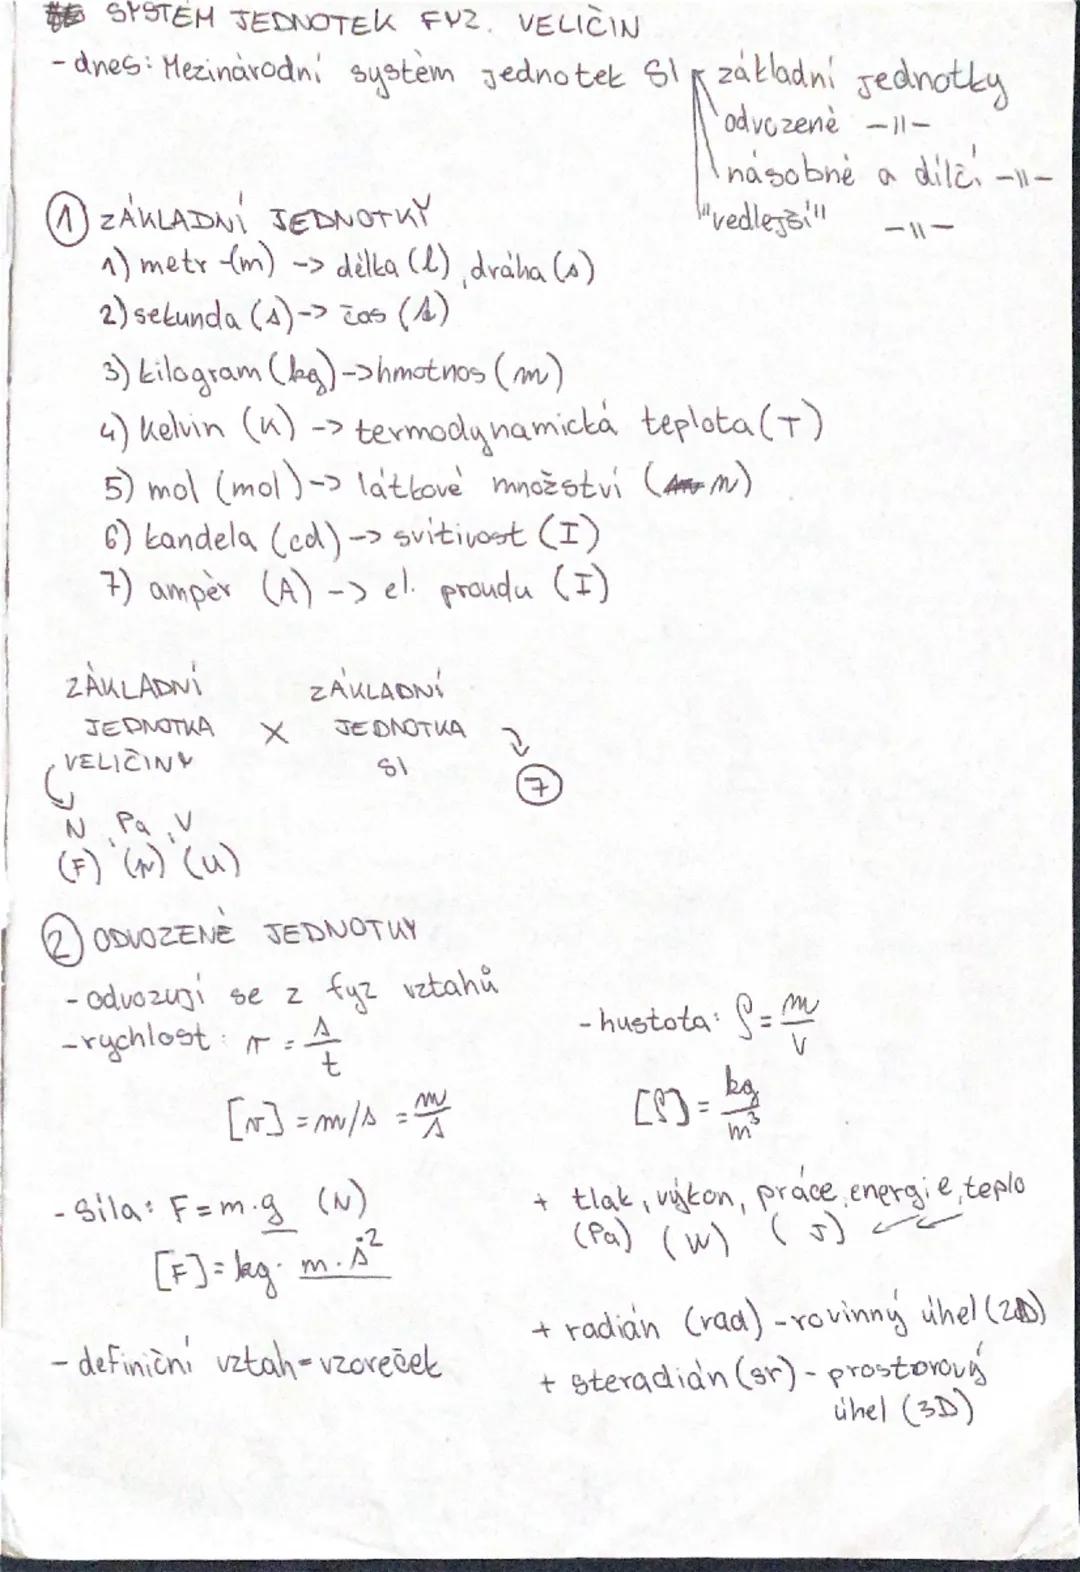 SYSTÉM JEDNOTEK FYZ. VELIČIN
- dnes: Mezinárodní systém jednotek SI základní jednotky
odvozené -11-
násobné a dílčí -11-
"vedlejší" -11-
① ZÁKLADNÍ JEDNOTKY
1) metr (m) -> délka (l), dráha (s)
2) sekunda (s) -> čas (t)
3) kilogram (kg) -> hmotnos (m)
4) Kelvin (K) -> termodynamická teplota (T)
5) mol (mol) -> látkové množství (n)
6) kandela (cd) -> svítivost (I)
7) ampér (A) -> el. proudu (I)
ZÁKLADNÍ JEDNOTKA VELIČINY X ZÁKLADNÍ JEDNOTKA SI
⑦
N, Pa, V
(F) (U)
② ODVOZENÉ JEDNOTKY
- odvozují se z fyz vztahů
- rychlost: v = s/t
[v] = m/s = m/s
- hustota: ρ = m/V
[ρ] = kg/m³
- síla: F = m.g (N)
[F] = kg. m.s²
- definiční vztah = vzoreček
+ tlak, výkon, práce, energie, teplo
(Pa) (W) (J)
+ radián (rad) - rovinný úhel (2D)
+ steradián (sr) - prostorový
úhel (3D)